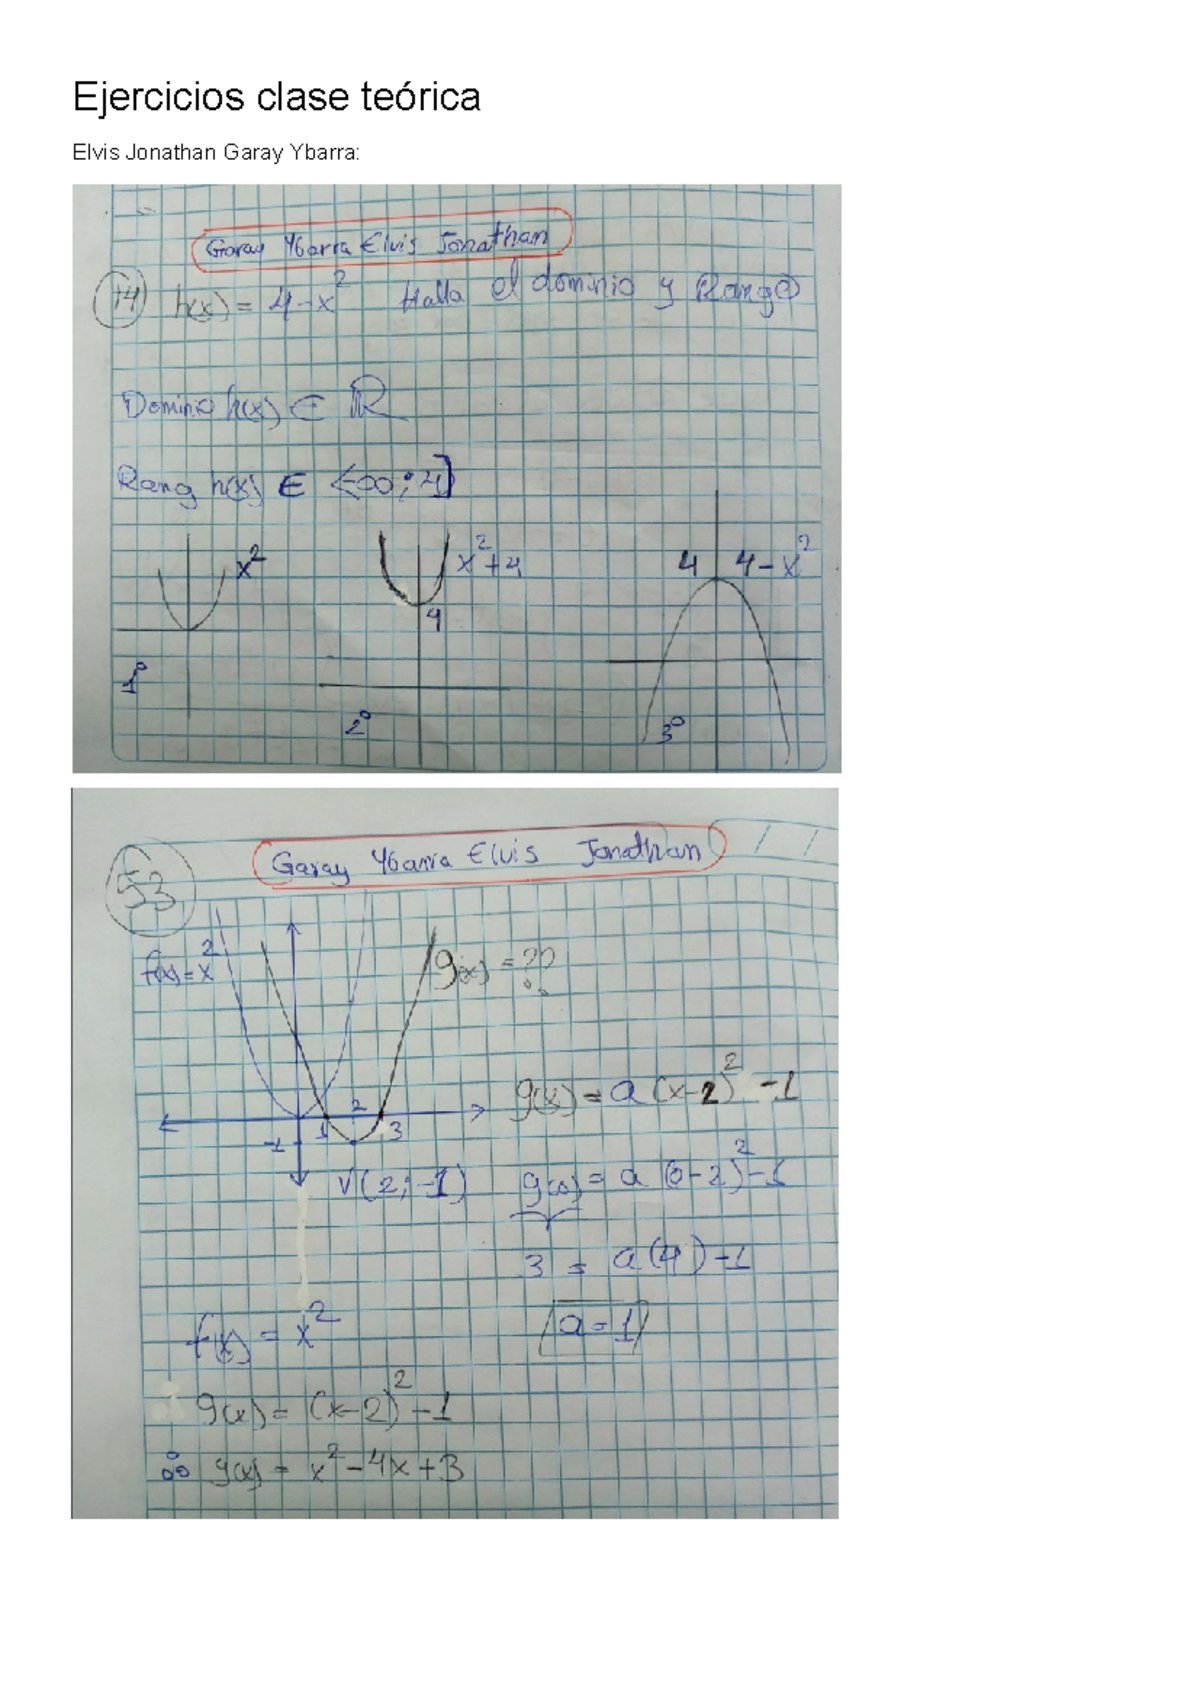 Ejercicios clase teórica
Elvis Jonathan Garay Ybarra:
Garay Ybarra Elvis Jonathan
14 h(x) = 4-x² Halla el dominio y Rango
Dominio h(x) ∈ ℝ
Rang h(x) ∈ <-∞; 4]
x²
x²+4
4
4 4-x²
1°
2°
3°
53
Garay Ybarra Elvis Jonathan
f(x) = x²
g(x) = ??
g(x) = a (x-2)² -1
2
1
3
-1
V(2; -1)
g(0) = a (0-2)² -1
3 = a(4) -1
a = 1
f(x) = x²
g(x) = (x-2)² -1
∴ g(x) = x² -4x +3